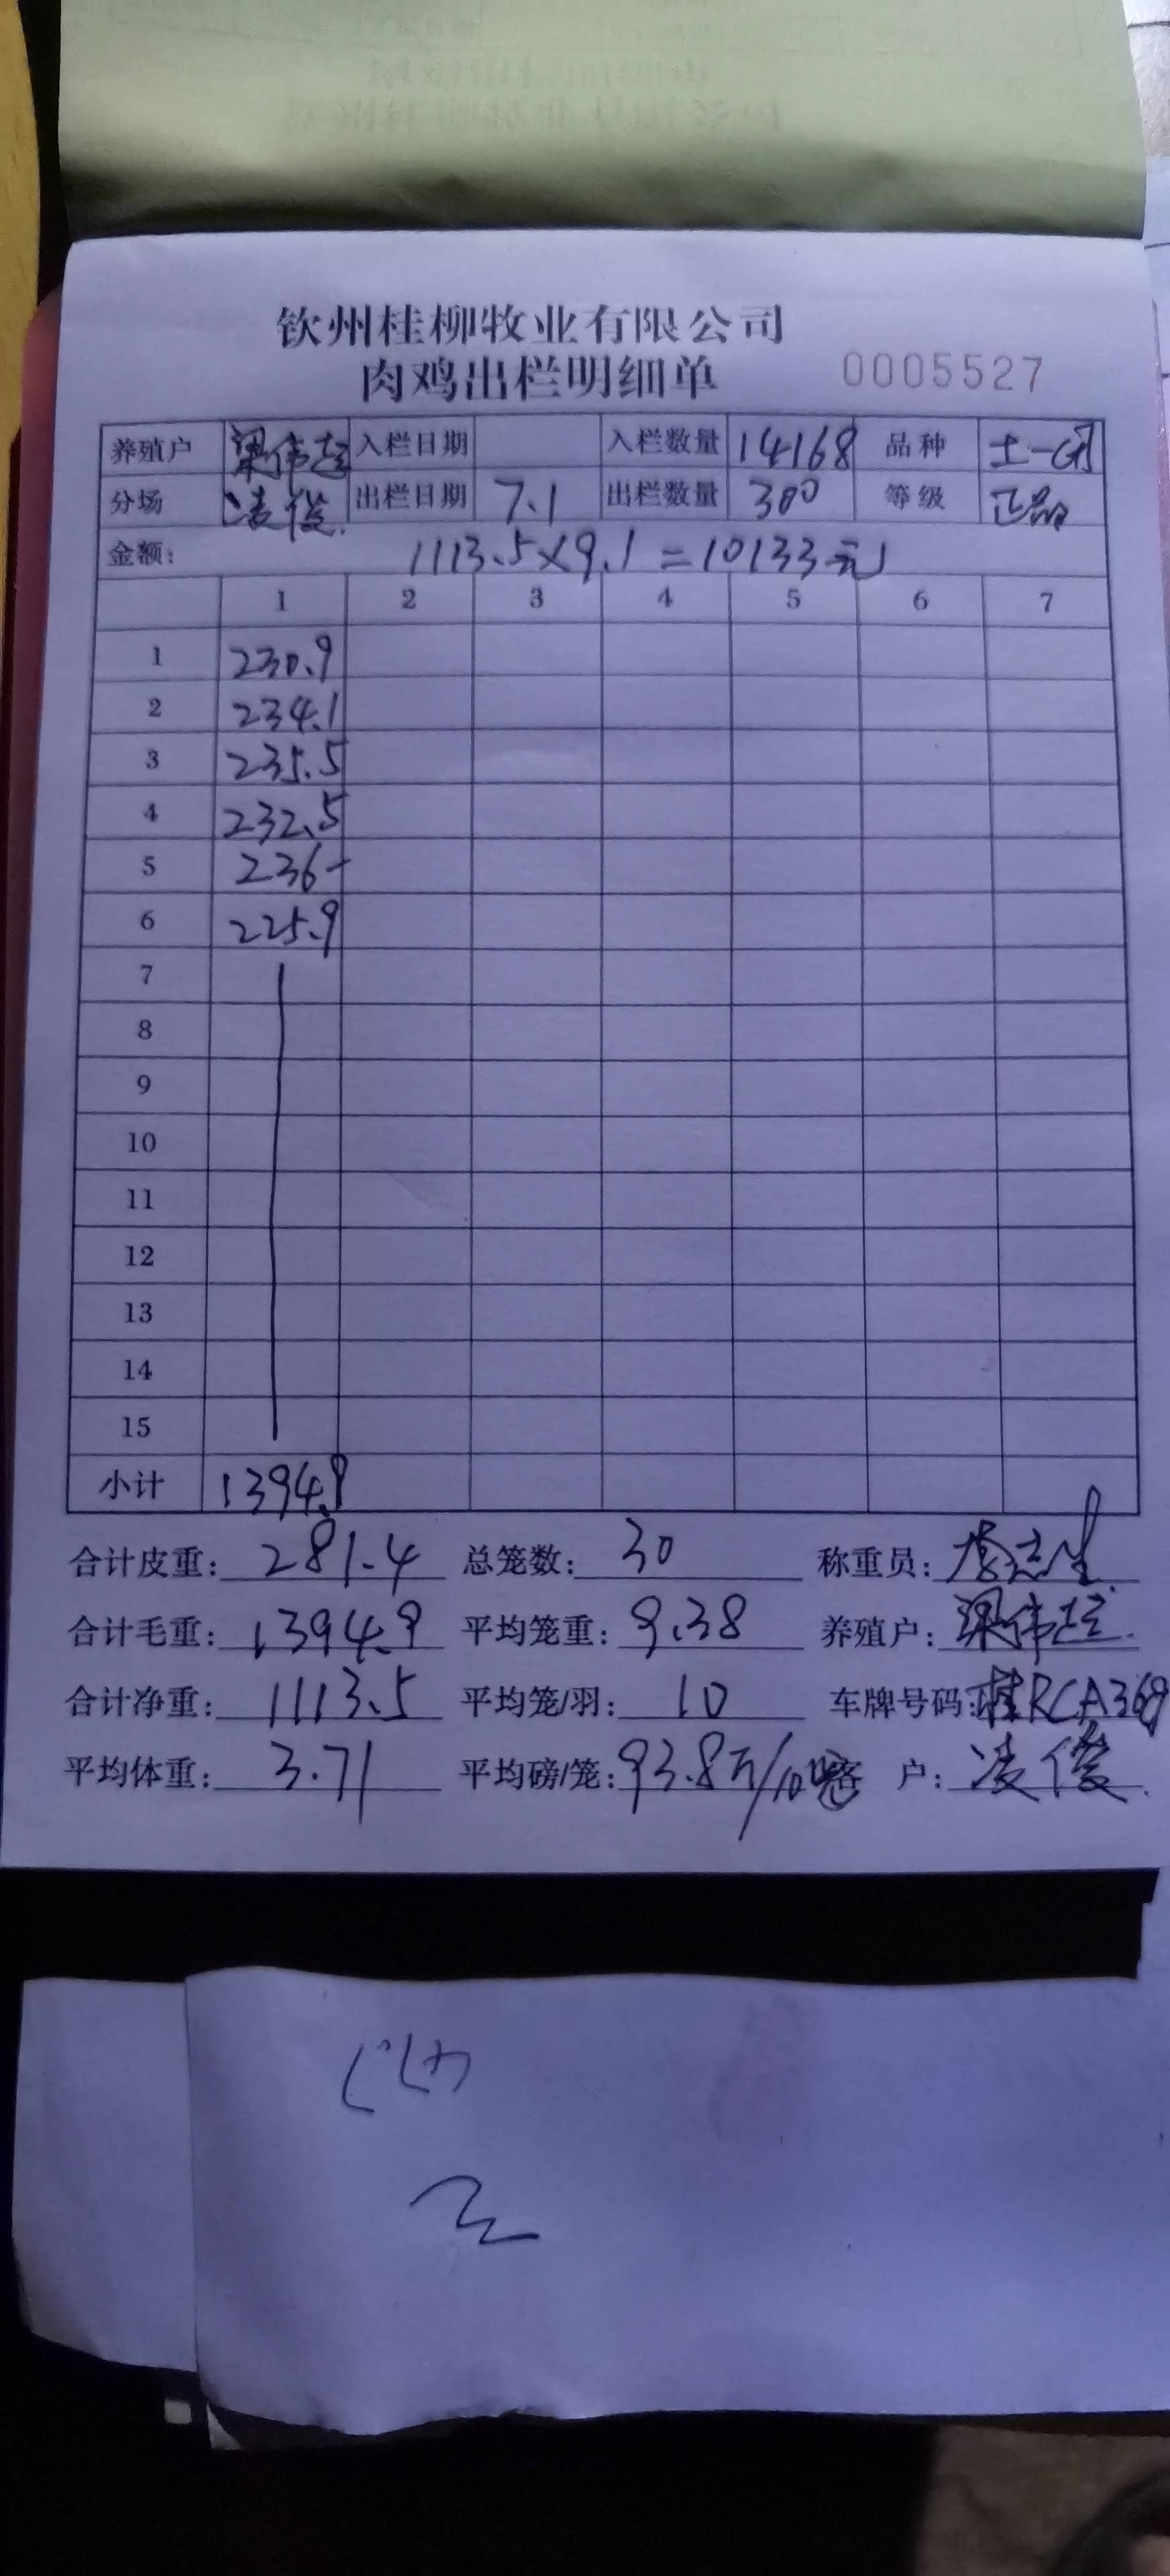 钦州桂柳牧业有限公司
肉鸡出栏明细单 0005527
养殖户 梁伟 入栏日期 入栏数量 14168 品种 土一
分场 凌俊 出栏日期 7.1 出栏数量 300 等级 正品
金额: 1113.5×9.1=10133元
1 2 3 4 5 6 7
1 230.9
2 234.1
3 235.5
4 232.5
5 236-
6 225.9
7
8
9
10
11
12
13
14
15
小计 1394.9
合计皮重: 281.4 总笼数: 30 称重员: 李志生
合计毛重: 1394.9 平均笼重: 9.38 养殖户: 梁伟
合计净重: 1113.5 平均笼/羽: 10 车牌号码: 桂RCA369
平均体重: 3.71 平均磅/笼: 93.8斤/10 客户: 凌俊